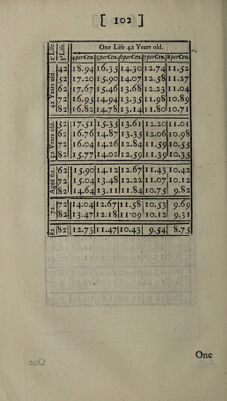 [ 102 ]
One Life 42 Years old.
2 Life. 3d Life. 4 per Cen. 5 per Cen. 6 per Cen. 7 per Cen. 8 per Cen.
42 Years old. 42 18.94 16.35 14.30 12.74 11.52
52 17.20 15.90 14.07 12.58 11.27
62 17.67 15.46 13.68 12.23 11.04
72 16.95 14.94 13.35 11.98 10.89
82 16.82 14.78 13.14 11.80 10.71
52 Years old. 52 17.51 15.35 13.61 12.20 11.01
62 16.76 14.87 13.35 12.06 10.98
72 16.04 14.26 12.84 11.59 10.55
82 15.77 14.02 12.59 11.39 10.35
Aged 62. 62 15.90 14.12 12.67 11.43 10.42
72 15.04 13.48 12.22 11.07 10.12
82 14.64 13.11 11.84 10.75 9.82
72. 72 14.04 12.67 11.58 10.53 9.69
82 13.47 12.18 11.09 10.12 9.31
82. 82 12.73 11.47 10.43 9.54 8.75
One